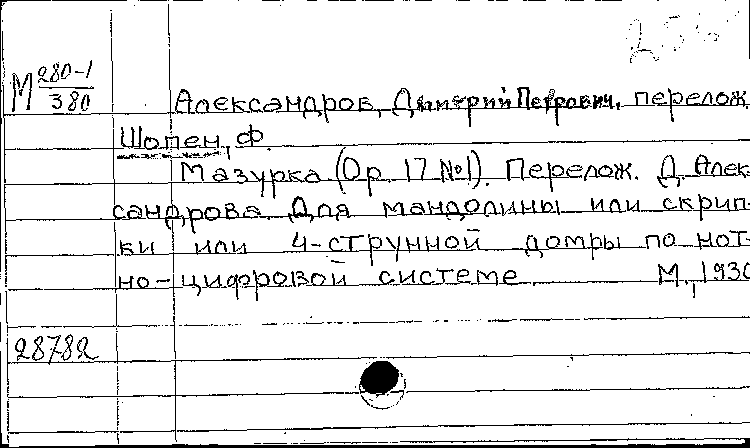 256
М 280-1
380
Александров, Дмитрий Петрович, перелож
Шопен, Ф.
Мазурка (Op. 17 №1). Перелож. Д. Алек-
сандрова. Для мандолины или скрип-
ки или 4-струнной домры по нот-
но-цифровой системе. М., 1930
28782